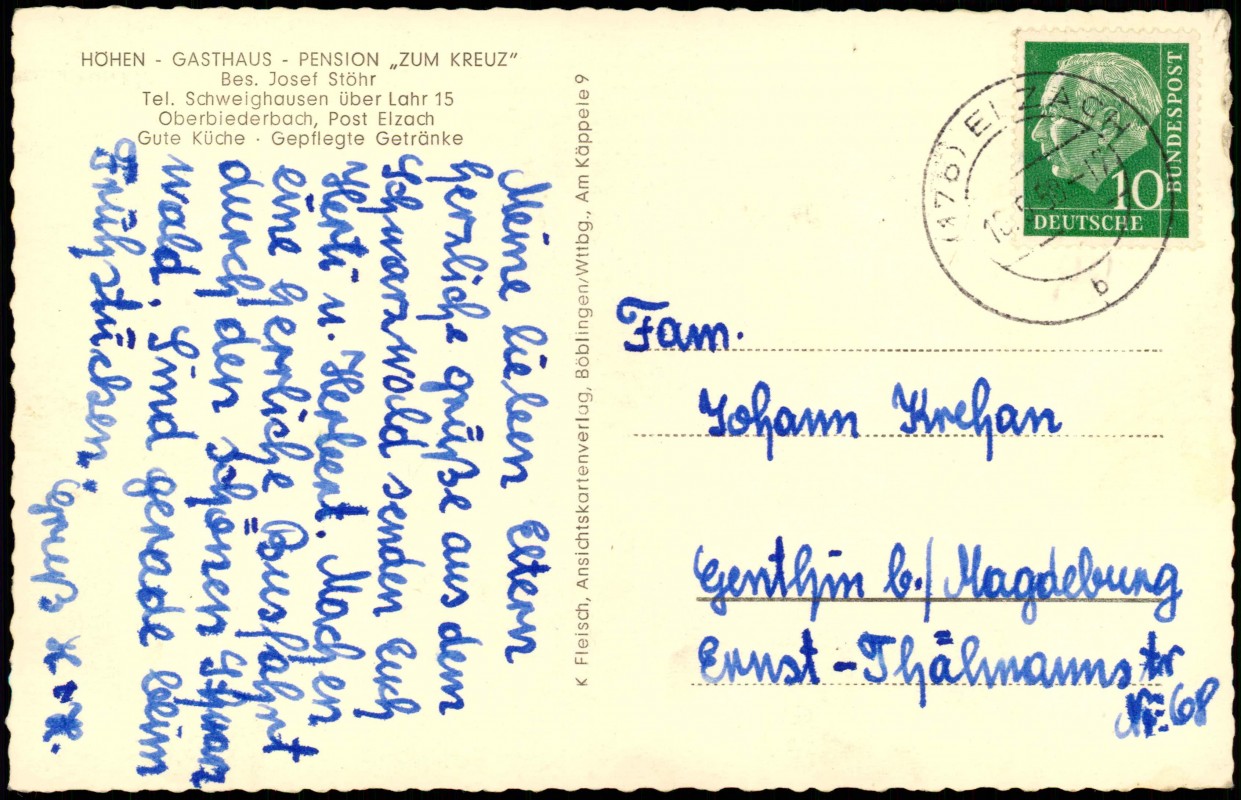 HÖHEN - GASTHAUS - PENSION „ZUM KREUZ"
Bes. Josef Stöhr
Tel. Schweighausen über Lahr 15
Oberbiederbach, Post Elzach
Gute Küche · Gepflegte Getränke
Meine lieben Eltern
herzliche Grüße aus dem
Schwarzwald senden Euch
Herti u. Herbert. Machen
eine herrliche Busfahrt
durch den schönen Schwarz
wald. Sind gerade beim
Frühstücken.
Gruß H. u. H.
K Fleisch, Ansichtskartenverlag, Böblingen/Wttbg., Am Käppele 9
ELZACH
b
DEUTSCHE
BUNDESPOST
10
Fam.
Johann Krehan
Genthin b./Magdeburg
Ernst-Thälmannstr
Nr. 68